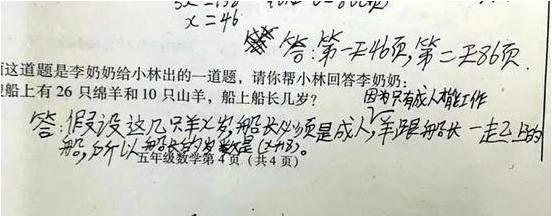 x=46
答:第一天46页,第二天86页.
面这道题是李奶奶给小林出的一道题,请你帮小林回答李奶奶:
船上有 26 只绵羊和 10 只山羊,船上船长几岁?
因为只有成人才能工作
答:假设这几只羊x岁,船长必须是成人,羊跟船长一起上的
船,所以船长的岁数是(x+18)。
五年级数学第 4 页(共 4 页)